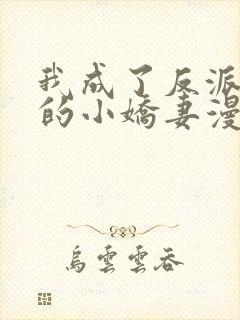 我成了反派
的小嬌妻漫
烏雲雲吞